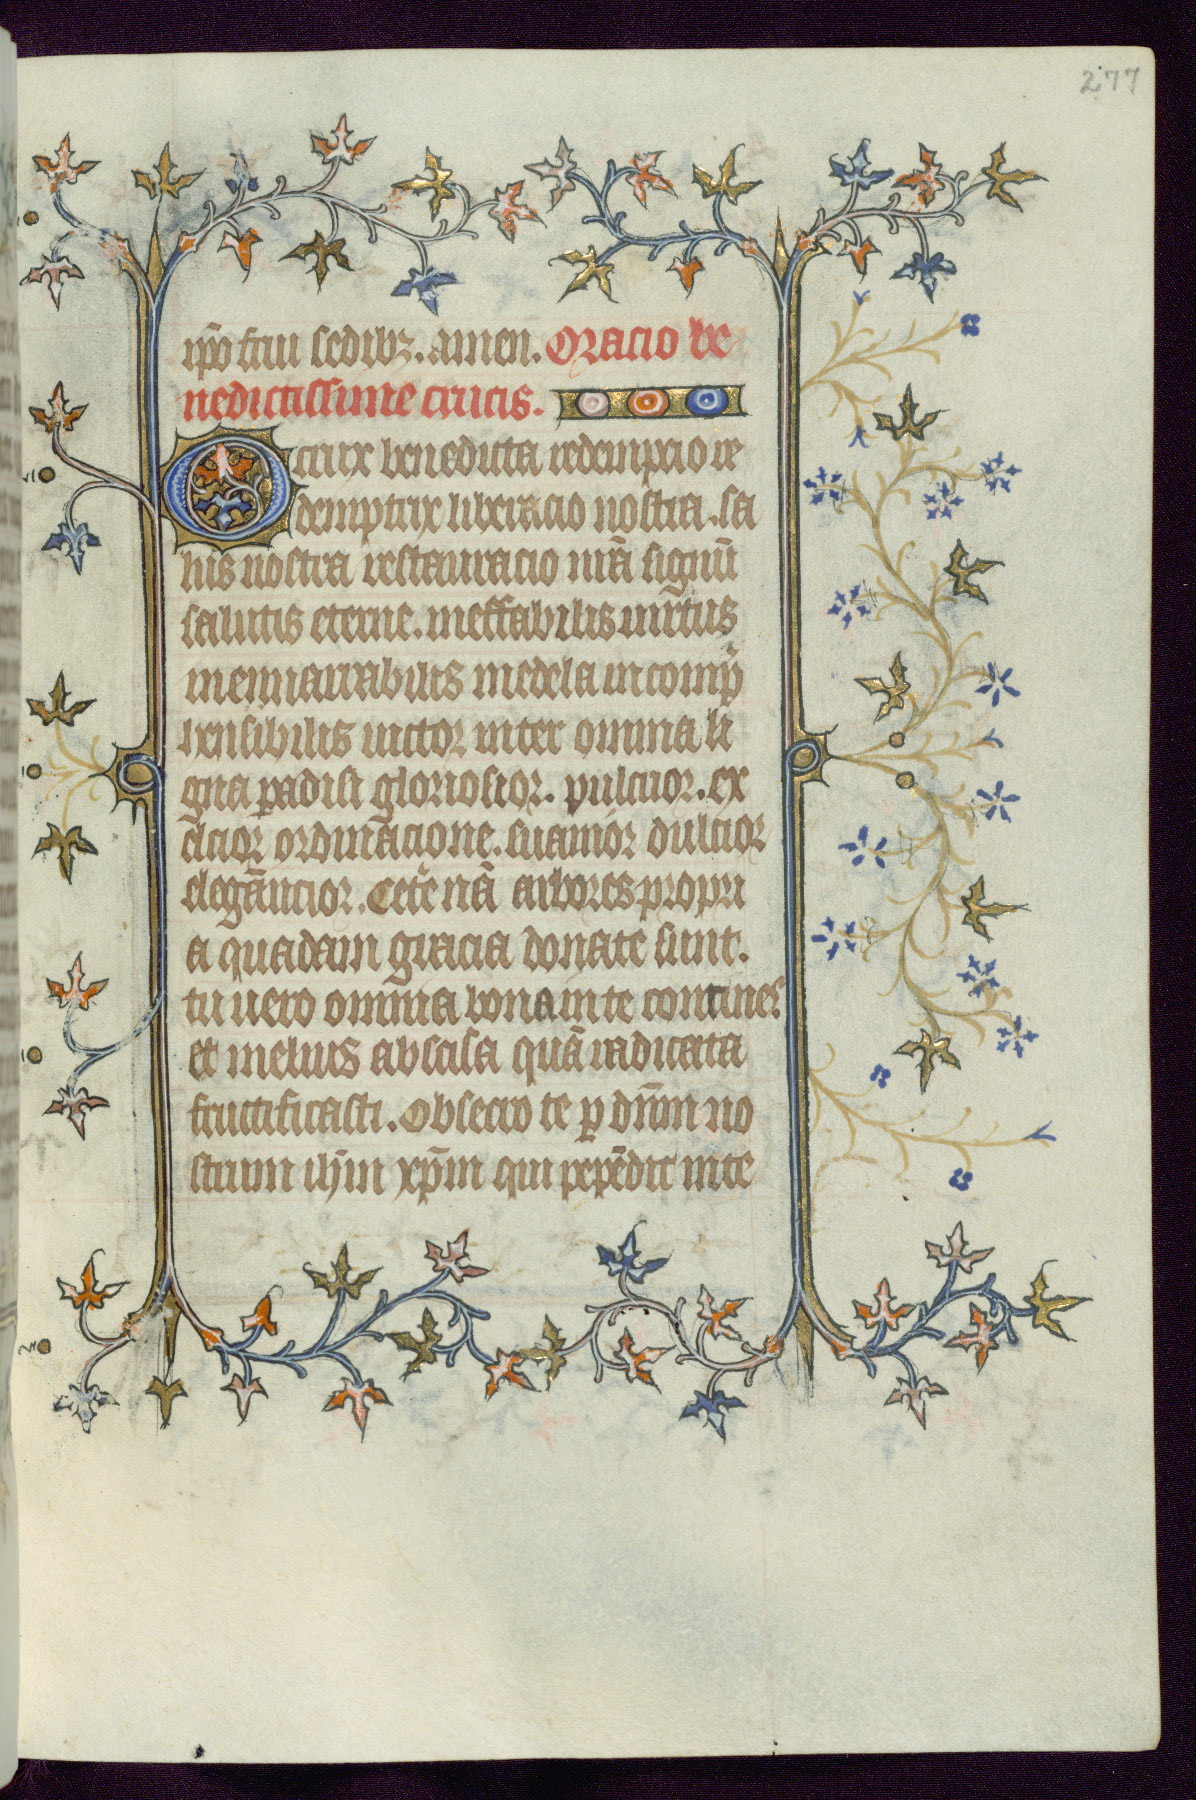 277
ip̄o frui sedibꝫ. amen. Oracio be
nedictissime crucis.
O crux benedicta redempcio re
demptrix liberacio nostra. sa
lus nostra restauracio nr̄a signū
salutis eterne. ineffabilis uirtus
inennarrabilis medela incomp̄
hensibilis uictor inter omnia li
gna ꝑadisi gloriosior. pulcrior. ex
elcior ordinacione. suauior dulcior
elegāncior. Cet̄e nā arbores propri
a quadam gracia donate sunt.
tu uero omnia bona in te contines
et melius abscisa quā radicata
fructificasti. Obsecro te ꝑ dn̄m no
strum ihm̄ xp̄m qui pepēdit in te